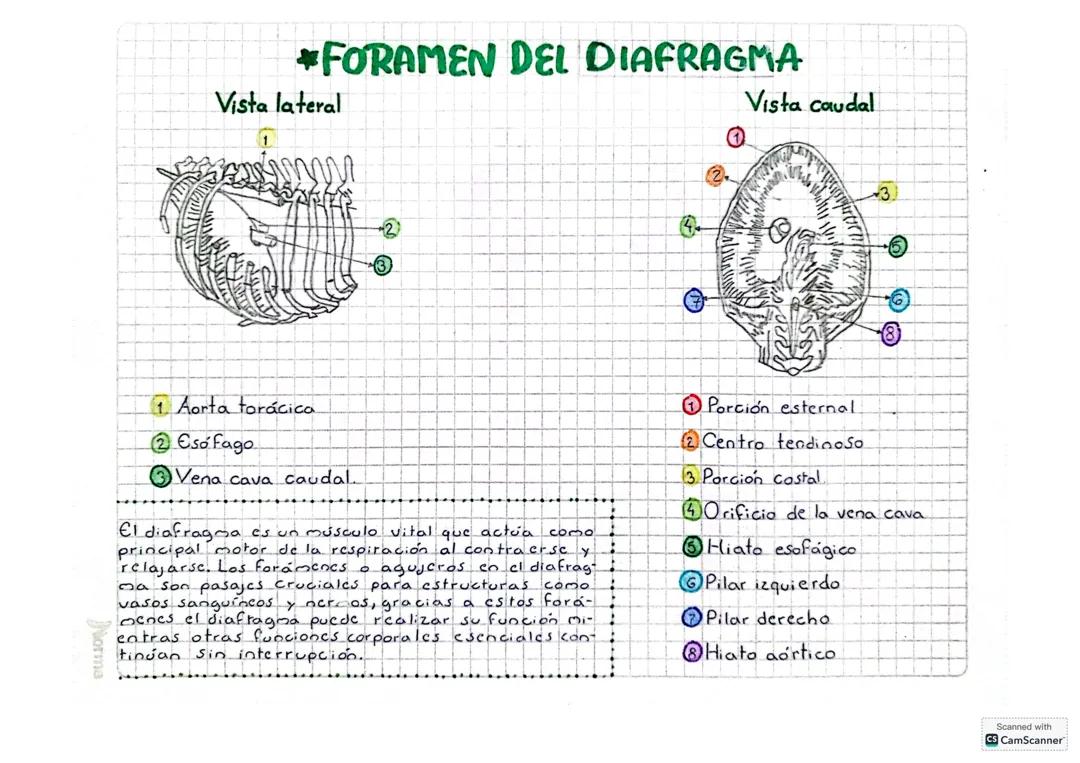 *FORAMEN DEL DIAFRAGMA
Vista lateral
1
2
3
1 Aorta torácica
2 Esófago
3 Vena cava caudal.
El diafragma es un músculo vital que actúa como
principal motor de la respiración al contraerse y
relajarse. Los forámenes o agujeros en el diafrag-
ma son pasajes cruciales para estructuras como
vasos sanguíneos y nervios, gracias a estos forá-
menes el diafragma puede realizar su función mi-
entras otras funciones corporales esenciales con-
tinúan sin interrupción.
Vista caudal
1
2
3
4
5
6
7
8
1 Porción esternal
2 Centro tendinoso
3 Porción costal
4 Orificio de la vena cava
5 Hiato esofágico
6 Pilar izquierdo
7 Pilar derecho
8 Hiato aórtico
Norma
Scanned with
CS CamScanner